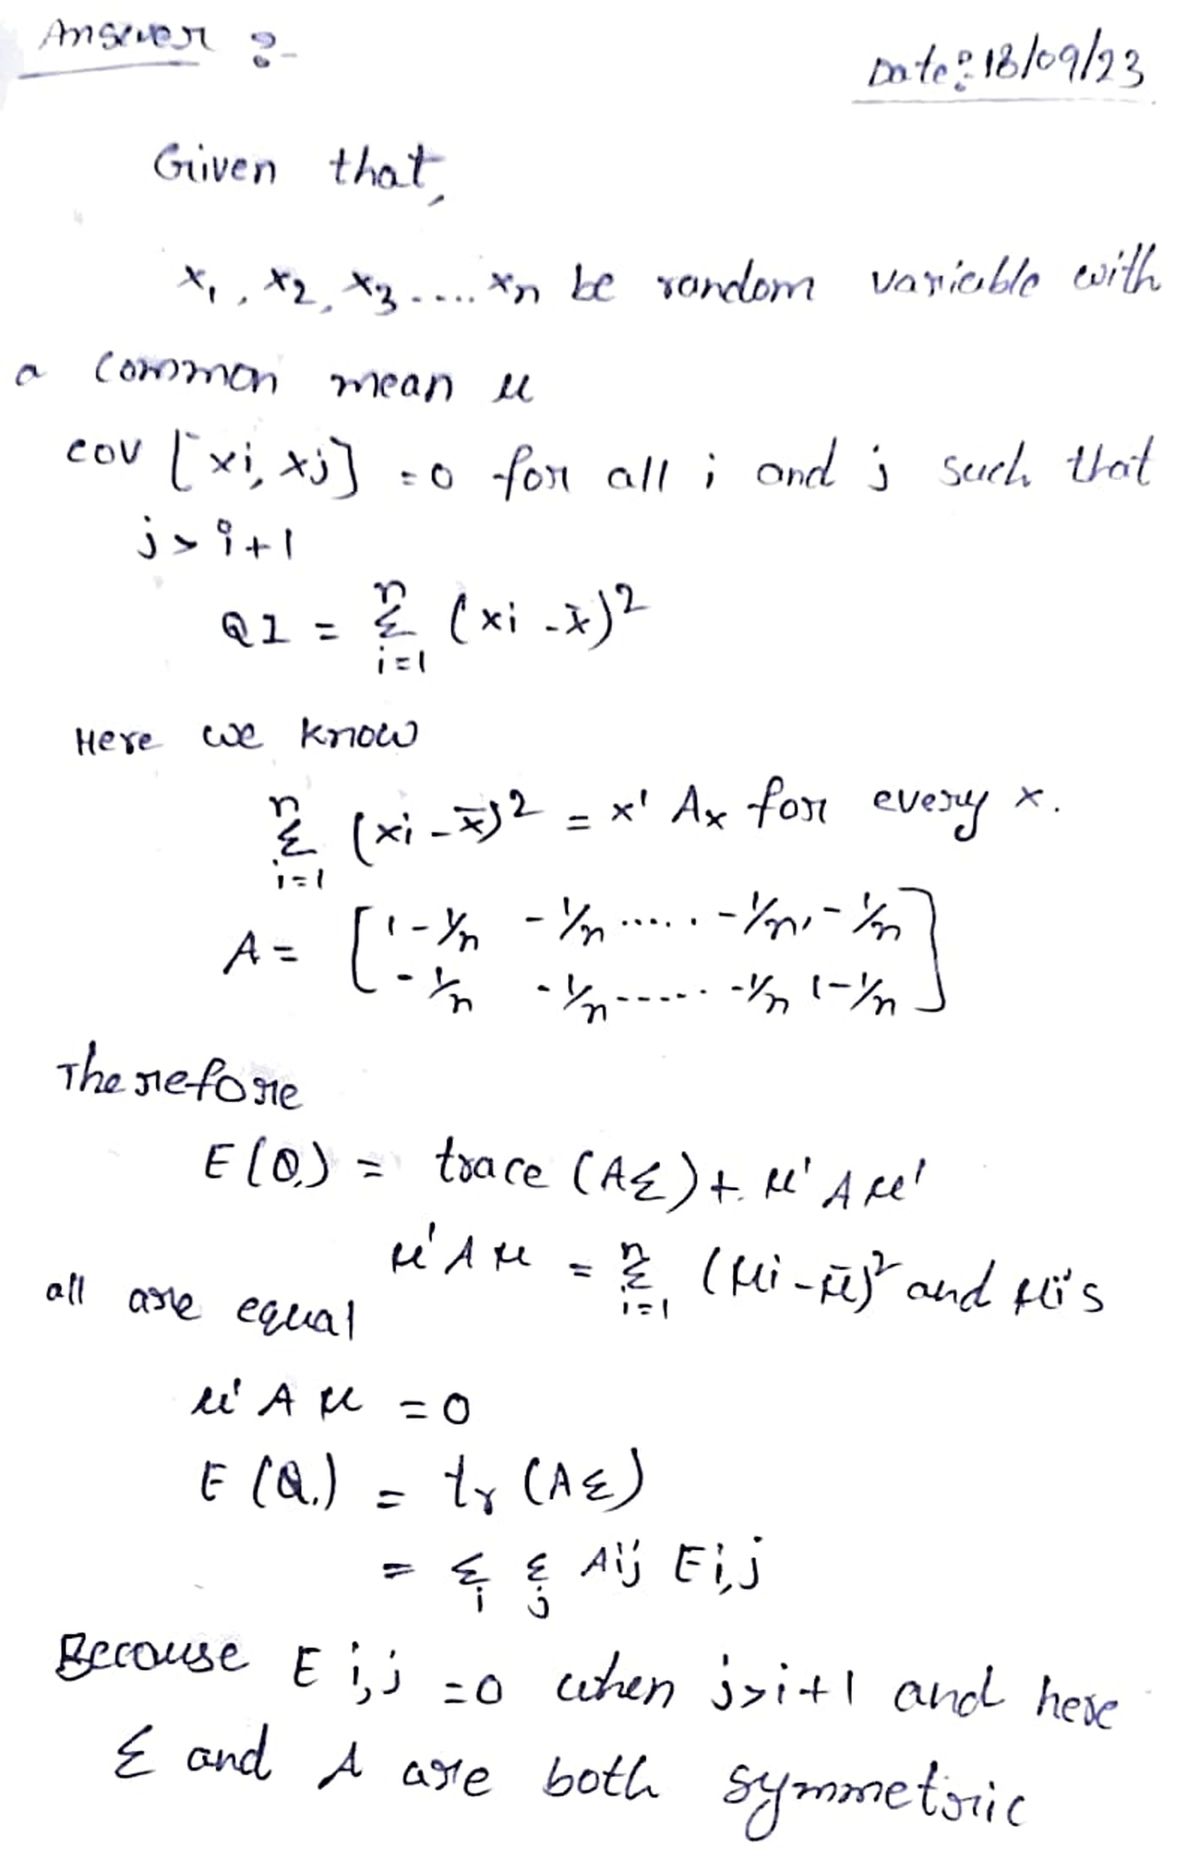 Answer :-
Date: 18/09/23
Given that,
x₁, x₂, x₃ .... xn be random variable with
a common mean μ
cov [xi, xj] = 0 for all i and j such that
j > i+1
Q1 = n Σ i=1 (xi - x̄)²
Here we know
n Σ i=1 (xi - x̄)² = x' Ax for every x.
A = [1-1/n -1/n ..... -1/n, -1/n
-1/n -1/n ...... -1/n 1-1/n]
Therefore
E(Q₁) = trace (AΣ) + μ' A μ'
μ' A μ = n Σ i=1 (μi - μ̄)² and μi's
all are equal
μ' A μ = 0
E (Q₁) = tr (AΣ)
= Σ i Σ j Aij Ei,j
Because E i,j = 0 when j>i+1 and here
Σ and A are both symmetric